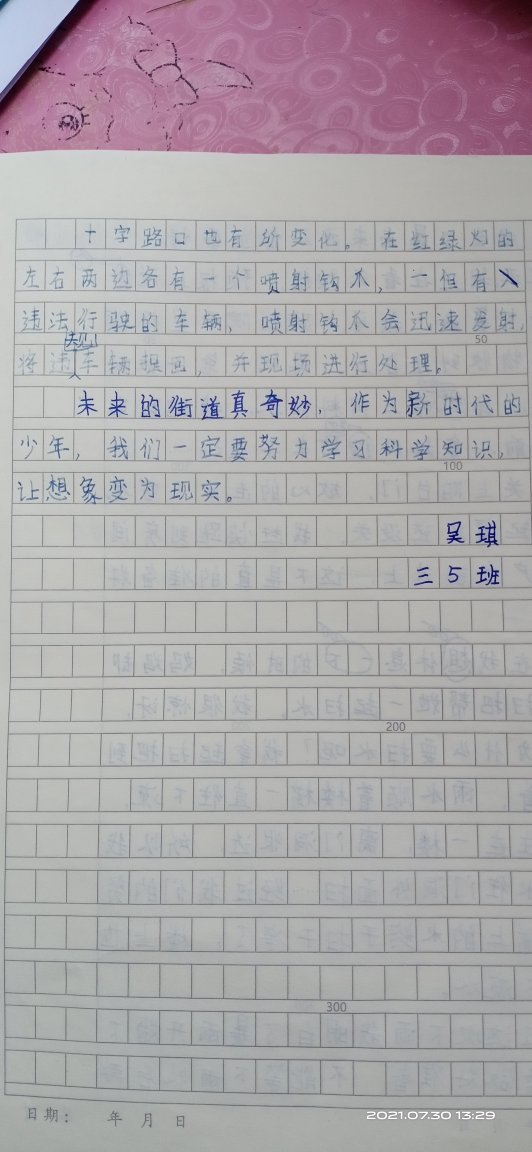 十字路口也有所变化。在红绿灯的
左右两边各有一个喷射钩爪，一但有
违法行驶的车辆，喷射钩爪会迅速发射，
50
规
将违车辆捉回，并现场进行处理。
未来的街道真奇妙，作为新时代的
少年，我们一定要努力学习科学知识，
100
让想象变为现实。
吴琪
三5班
200
300
日期： 年 月 日
2021.07.30 13:29